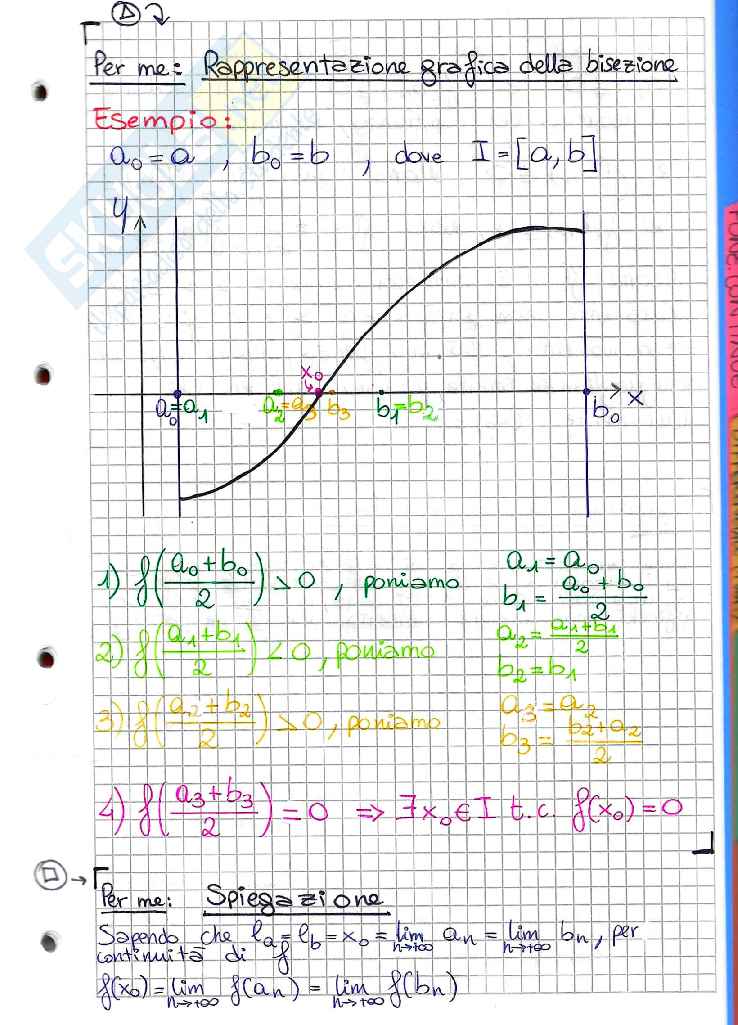 Per me: Rappresentazione grafica della bisezione
Esempio:
a₀ = a , b₀ = b , dove I = [a, b]
y
x₀
a₀ = a₁ a₂ = a₃ b₃ b₁ = b₂ b₀ x
1) f((a₀ + b₀)/2) > 0 , poniamo a₁ = a₀
b₁ = (a₀ + b₀)/2
2) f((a₁ + b₁)/2) < 0 , poniamo a₂ = (a₁ + b₁)/2
b₂ = b₁
3) f((a₂ + b₂)/2) > 0 , poniamo a₃ = a₂
b₃ = (b₂ + a₂)/2
4) f((a₃ + b₃)/2) = 0 ⇒ ∃ x₀ ∈ I t.c. f(x₀) = 0
Per me: Spiegazione
Sapendo che lₐ = l_b = x₀ = lim n→+∞ aₙ = lim n→+∞ bₙ , per
continuità di f
f(x₀) = lim n→+∞ f(aₙ) = lim n→+∞ f(bₙ)